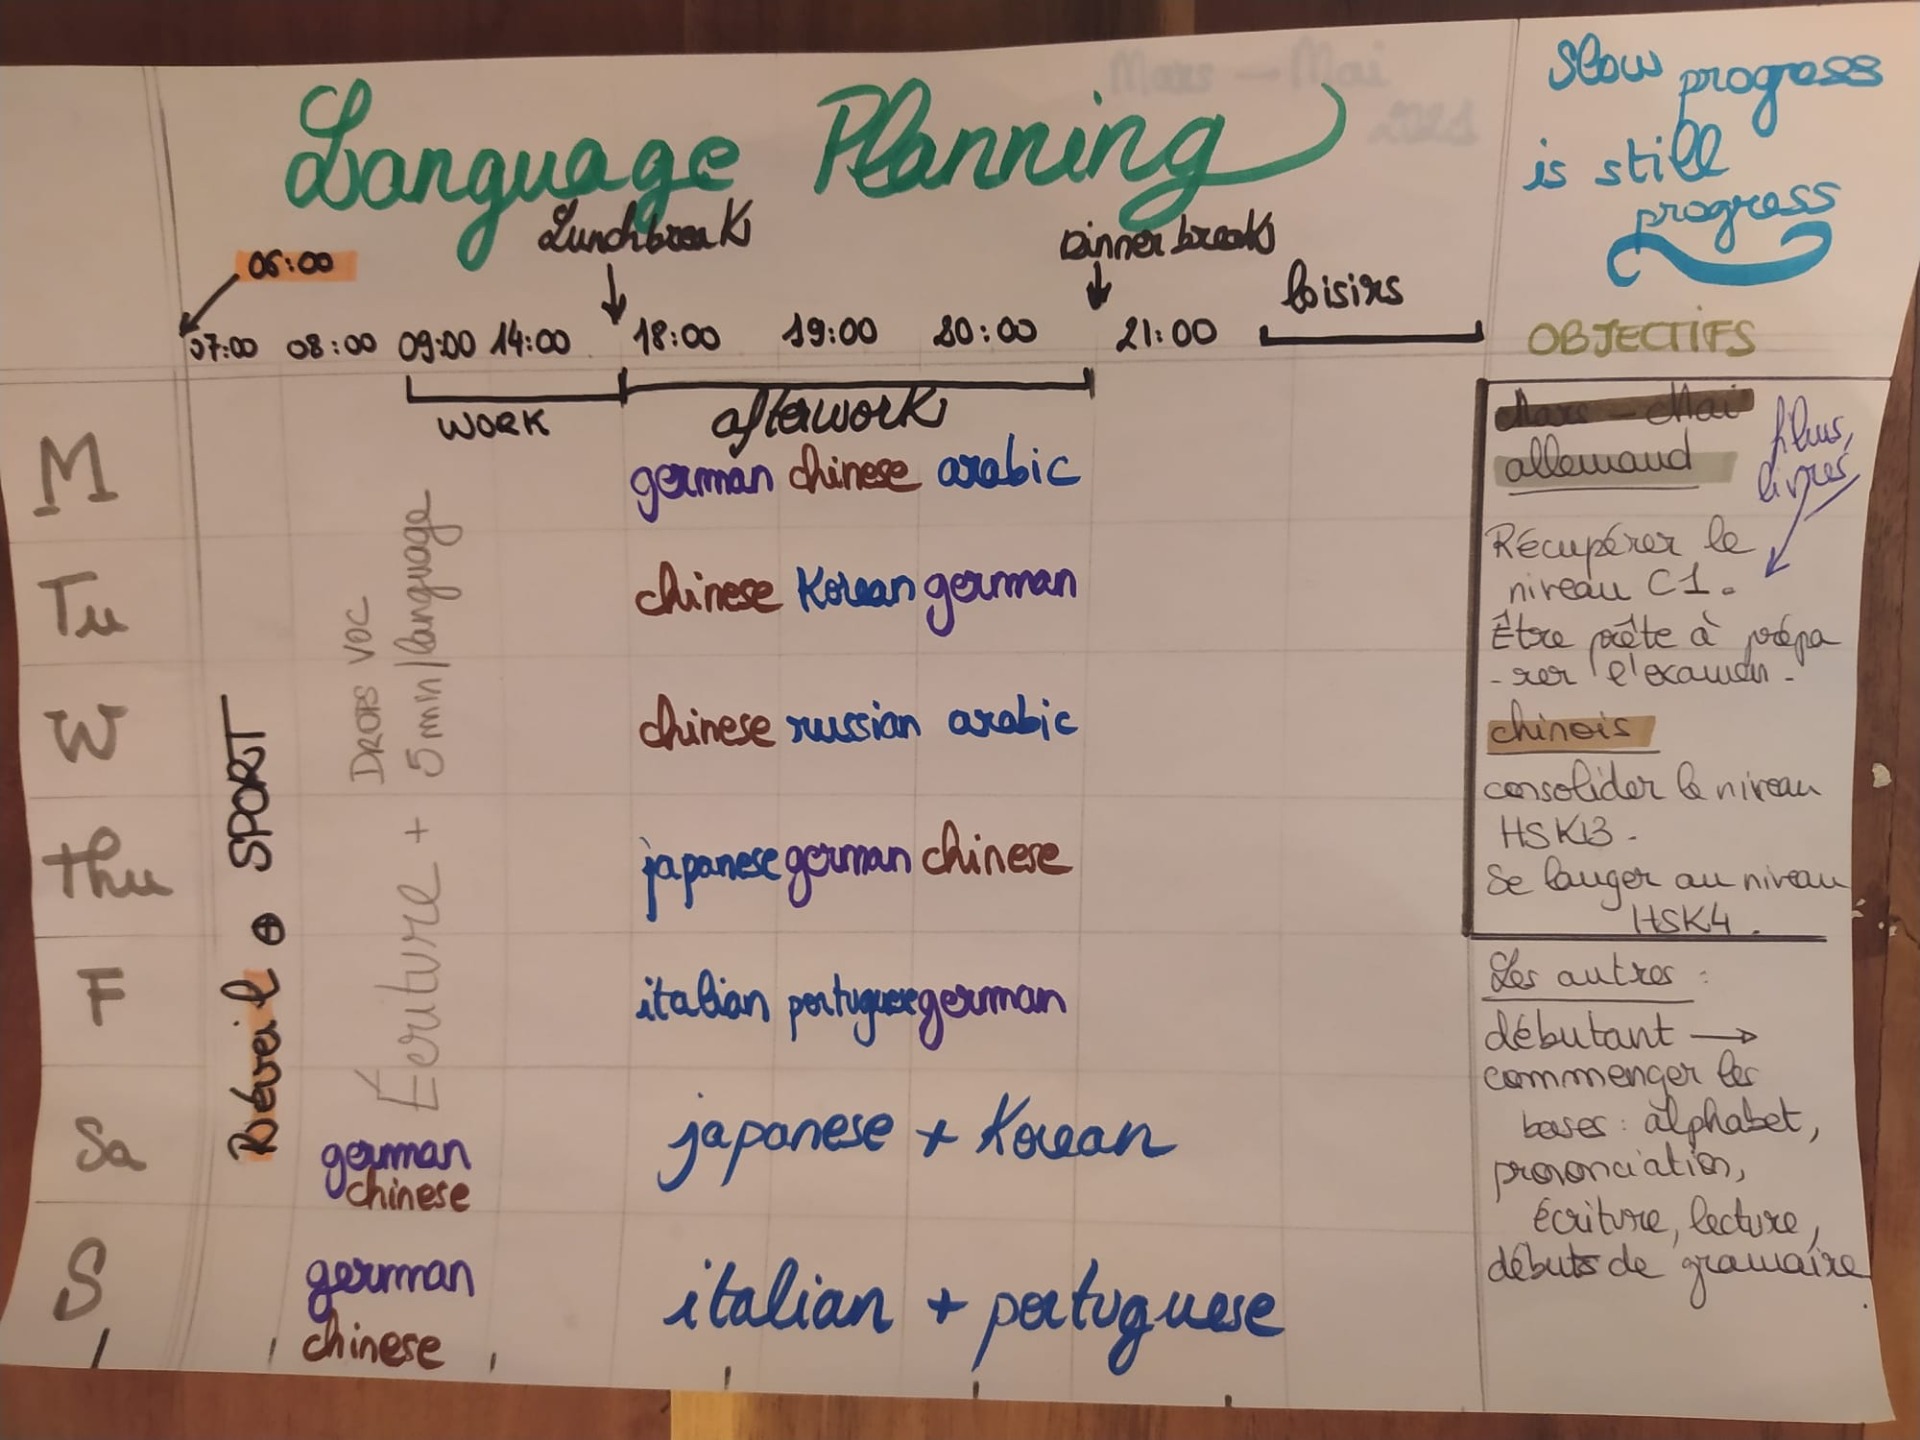 Mars - Mai
2021
Language Planning
Slow progress
is still
progress
06:00
Lunchbreak
Dinner break
loisirs
07:00 08:00 09:00 14:00 18:00 19:00 20:00 21:00
OBJECTIFS
WORK
afterwork
M
german chinese arabic
Tu
chinese Korean german
W
chinese russian arabic
Thu
japanese german chinese
F
italian portuguese german
Sa
german
chinese
japanese + Korean
S
german
chinese
italian + portuguese
Réveil ⊕ SPORT
Écriture + DROPS VOC
5mn/language
Mars - Mai
allemand
films,
livres
Récupérer le
niveau C1.
Être prête à prépa
-rer l'examen.
chinois
consolider le niveau
HSK3.
Se langer au niveau
HSK4.
Les autres :
débutant →
commenger les
bases : alphabet,
prononciation,
écriture, lecture,
débuts de gramaire.